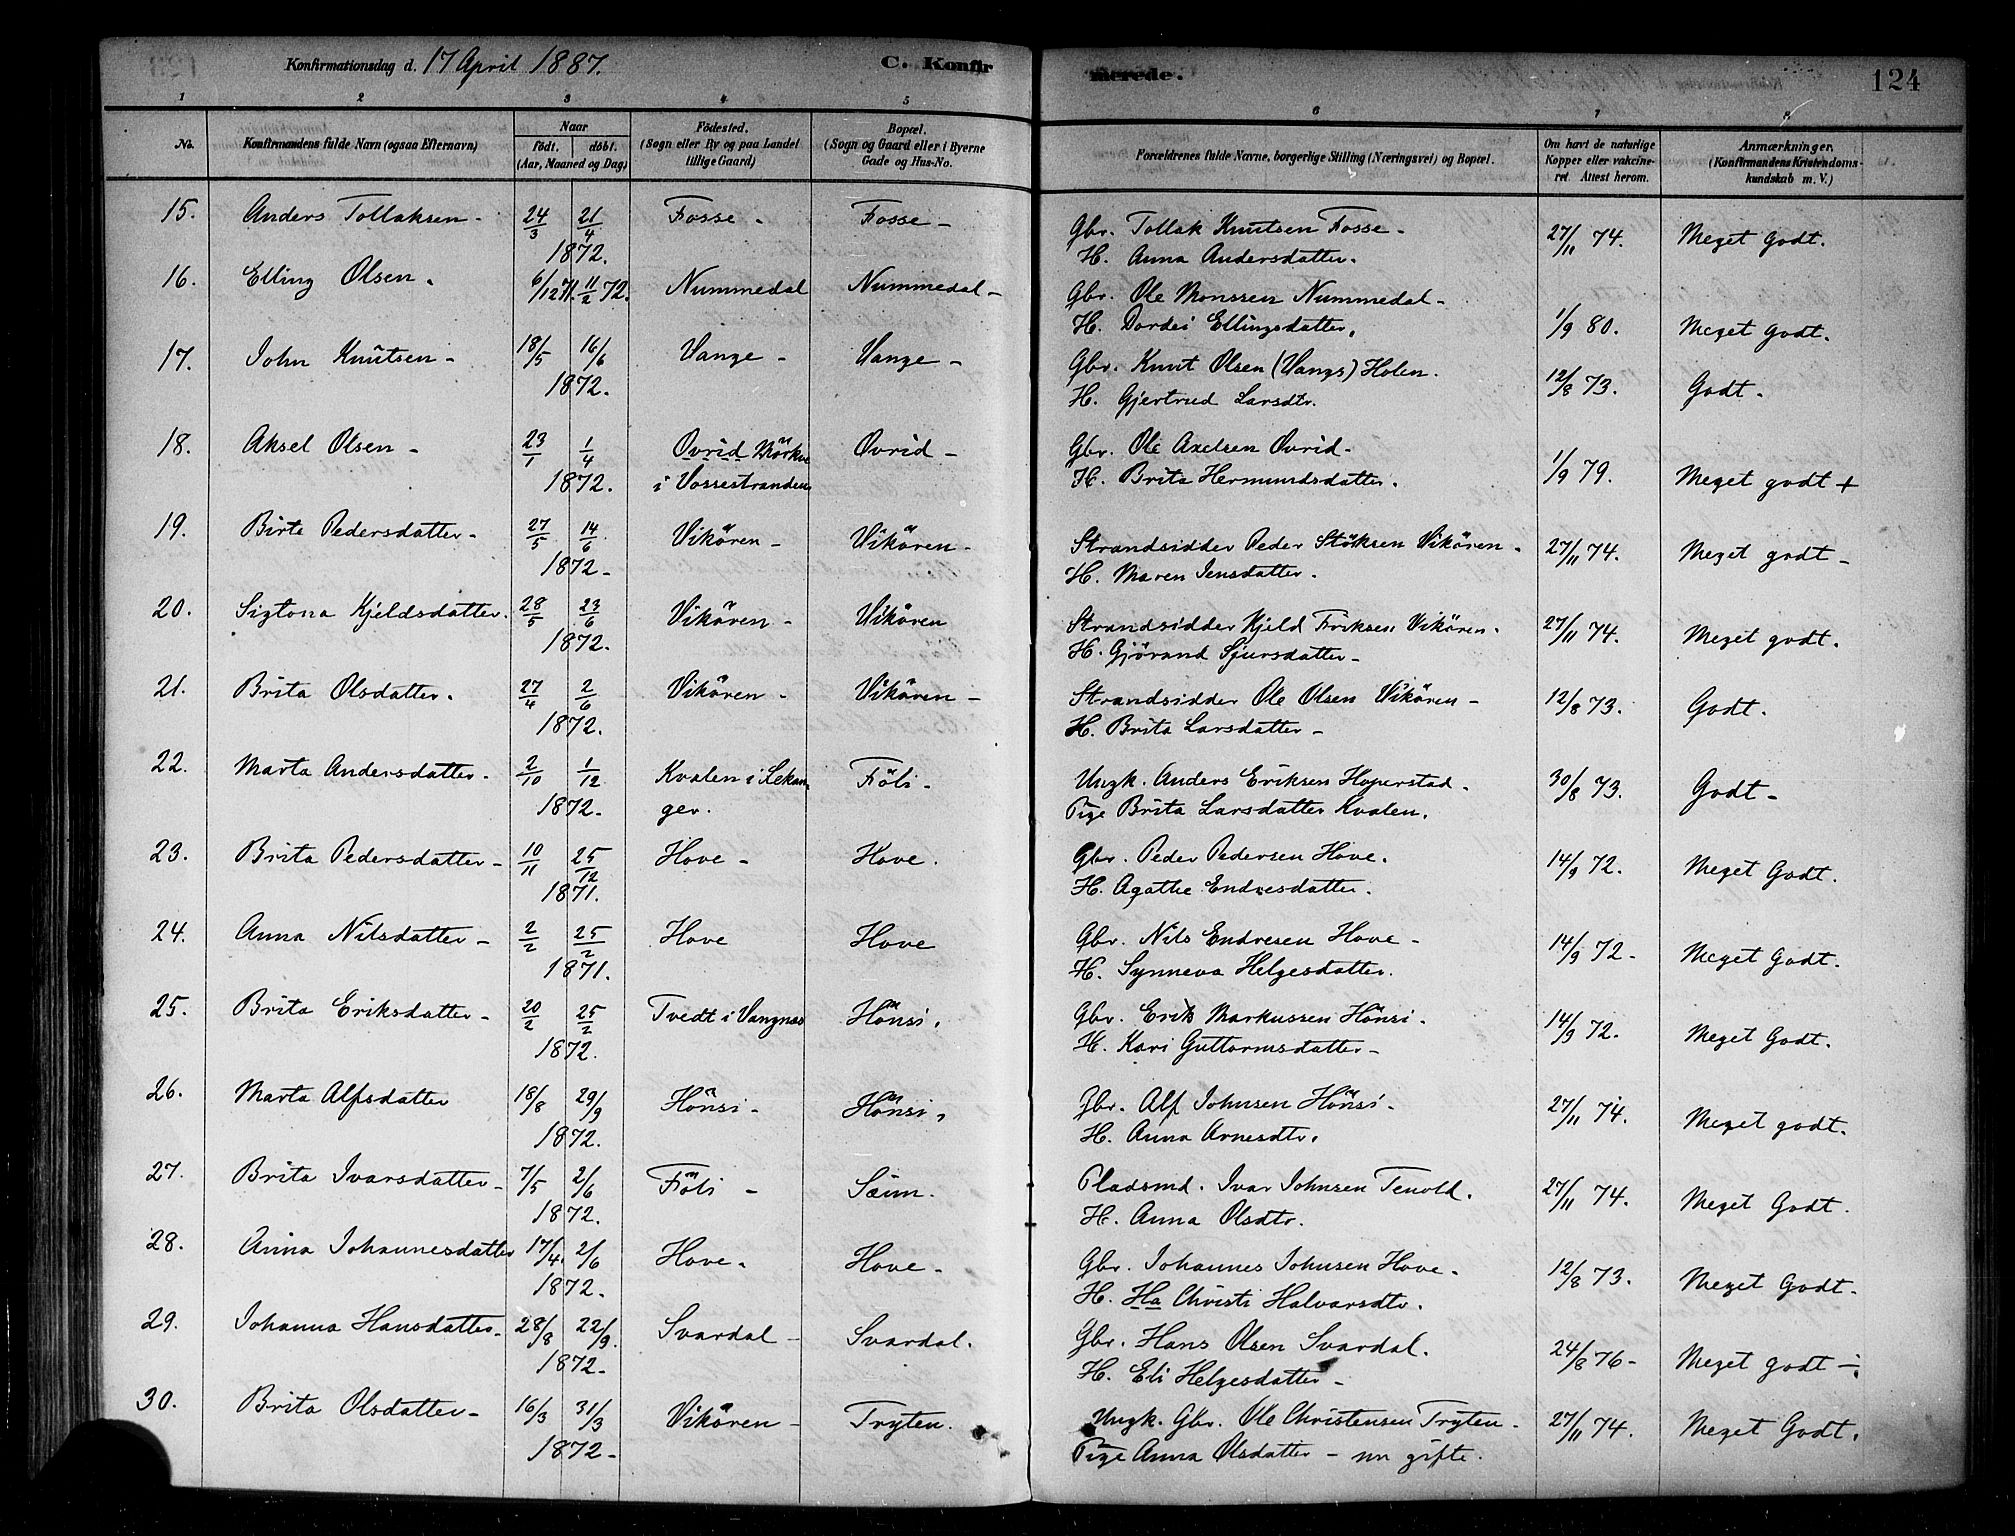 Konfirmationsdag d. 17 April 1887. C. Konfir merede. 124
1 2 3 4 5 6 7 8
No. Konfirmandens fulde Navn (ogsaa Efternavn) Naar født. døbt. (Aar, Maaned og Dag) Fødested. (Sogn eller By og paa Landet tillige Gaard) Bopæl. (Sogn og Gaard eller i Byerne Gade og Hus-No. Forældrenes fulde Navne, borgerlige Stilling (Næringsvei) og Bopæl. Om havt de naturlige Kopper eller vakcineret. Attest herom. Anmærkninger. (Konfirmandens Kristendomskundskab m. V.)
15. Anders Tollaksen - 24/3 21/4 Fosse - Fosse - Gbr. Tollak Knutsen Fosse - 27/11 74. Meget Godt.
1872. H. Anna Andersdatter.
16. Elling Olsen. 6/12 71. 11/2 72. Nummedal Nummedal - Gbr. Ole Monssen Nummedal -
H. Dordei Ellingsdatter. 1/9 80. Meget Godt.
17. John Knutsen - 18/5 16/6 Vange - Vange - Gbr. Knut Olsen (Vangs) Holen.
1872. H. Gjertrud Larsdtr. 12/8 73. Godt.
18. Aksel Olsen - 23/1 1/4 Ovrid Mörkve Ovrid - Gbr. Ole Axelsen Ovrid -
1872. i Vossestranden H. Brita Hermundsdatter. 1/9 79. Meget godt +
19. Birte Pedersdatter - 27/5 14/6 Vikören - Vikören - Strandsidder Peder Stöksen Vikören. 27/11 74. Meget godt -
1872 - H. Maren Jensdatter.
20. Sigtona Kjeldsdatter. 28/5 23/6 Vikören - Vikören Strandsidder Kjeld Eriksen Vikören. 27/11 74. Meget godt.
1872. H. Gjörand Sjursdatter -
21. Brita Olsdatter. 27/4 2/6 Vikören - Vikören - Strandsidder Ole Olsen Vikören - 12/8 73. Godt.
1872. H. Brita Larsdatter -
22. Marta Andersdatter. 2/10 1/12 Kvalen i Lekan- Föli - Ungk. Anders Eriksen Hoperstad. 30/8 73. Godt -
1872. ger. Pige Brita Larsdatter Kvalen.
23. Brita Pedersdatter - 10/11 25/12 Hove - Hove. Gbr. Peder Pedersen Hove. 14/9 72. Meget Godt.
1871. H. Agathe Endresdatter.
24. Anna Nilsdatter - 2/2 25/2 Hove Hove Gbr. Nils Endresen Hove - 14/9 72 - Meget Godt.
1871. H. Synneva Helgesdatter.
25. Brita Eriksdatter - 20/2 25/2 Tvedt i Vangnæs Hönsi. Gbr. Erik Markussen Hönsi. 14/9 72. Meget Godt.
1872. H. Kari Guttormsdatter -
26. Marta Alfsdatter 18/8 29/9 Hönsi - Hönsi. Gbr. Alf Johnsen Hönsi. 27/11 74. Meget godt.
1872. H. Anna Arnesdtr.
27. Brita Ivarsdatter - 7/5 2/6 Föli - Sæim. Pladsmd. Ivar Johnsen Tenold. 27/11 74. Meget Godt.
1872. H. Anna Olsdtr.
28. Anna Johannesdatter 17/4. 2/6 Hove. Hove. Gbr. Johannes Johnsen Hove. 12/8 73. Meget Godt.
1872. H. Ha Christi Halvarsdtr.
29. Johanna Hansdatter. 28/8 22/9. Svardal - Svardal. Gbr. Hans Olsen Svardal. 24/8 76 - Meget godt ÷
1872. H. Eli Helgesdatter -
30. Brita Olsdatter - 16/3 31/3 Vikören - Tryten. Ungk. Gbr. Ole Christensen Tryten. 27/11 74. Meget Godt.
1872 - Pige Anna Olsdatter - nu gifte.